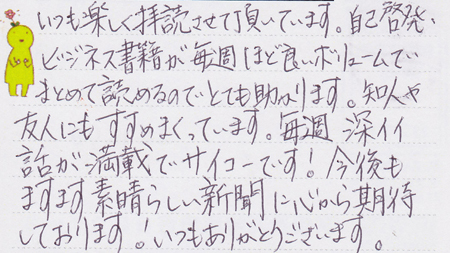 いつも楽しく拝読させて頂いています。自己啓発、
ビジネス書籍が毎週ほど良いボリュームで
まとめて読めるのでとても助かります。知人や
友人にもすすめまくっています。毎週深イイ
話が満載でサイコーです!今後も
ますます素晴らしい新聞に心から期待
しております!いつもありがとうございます。